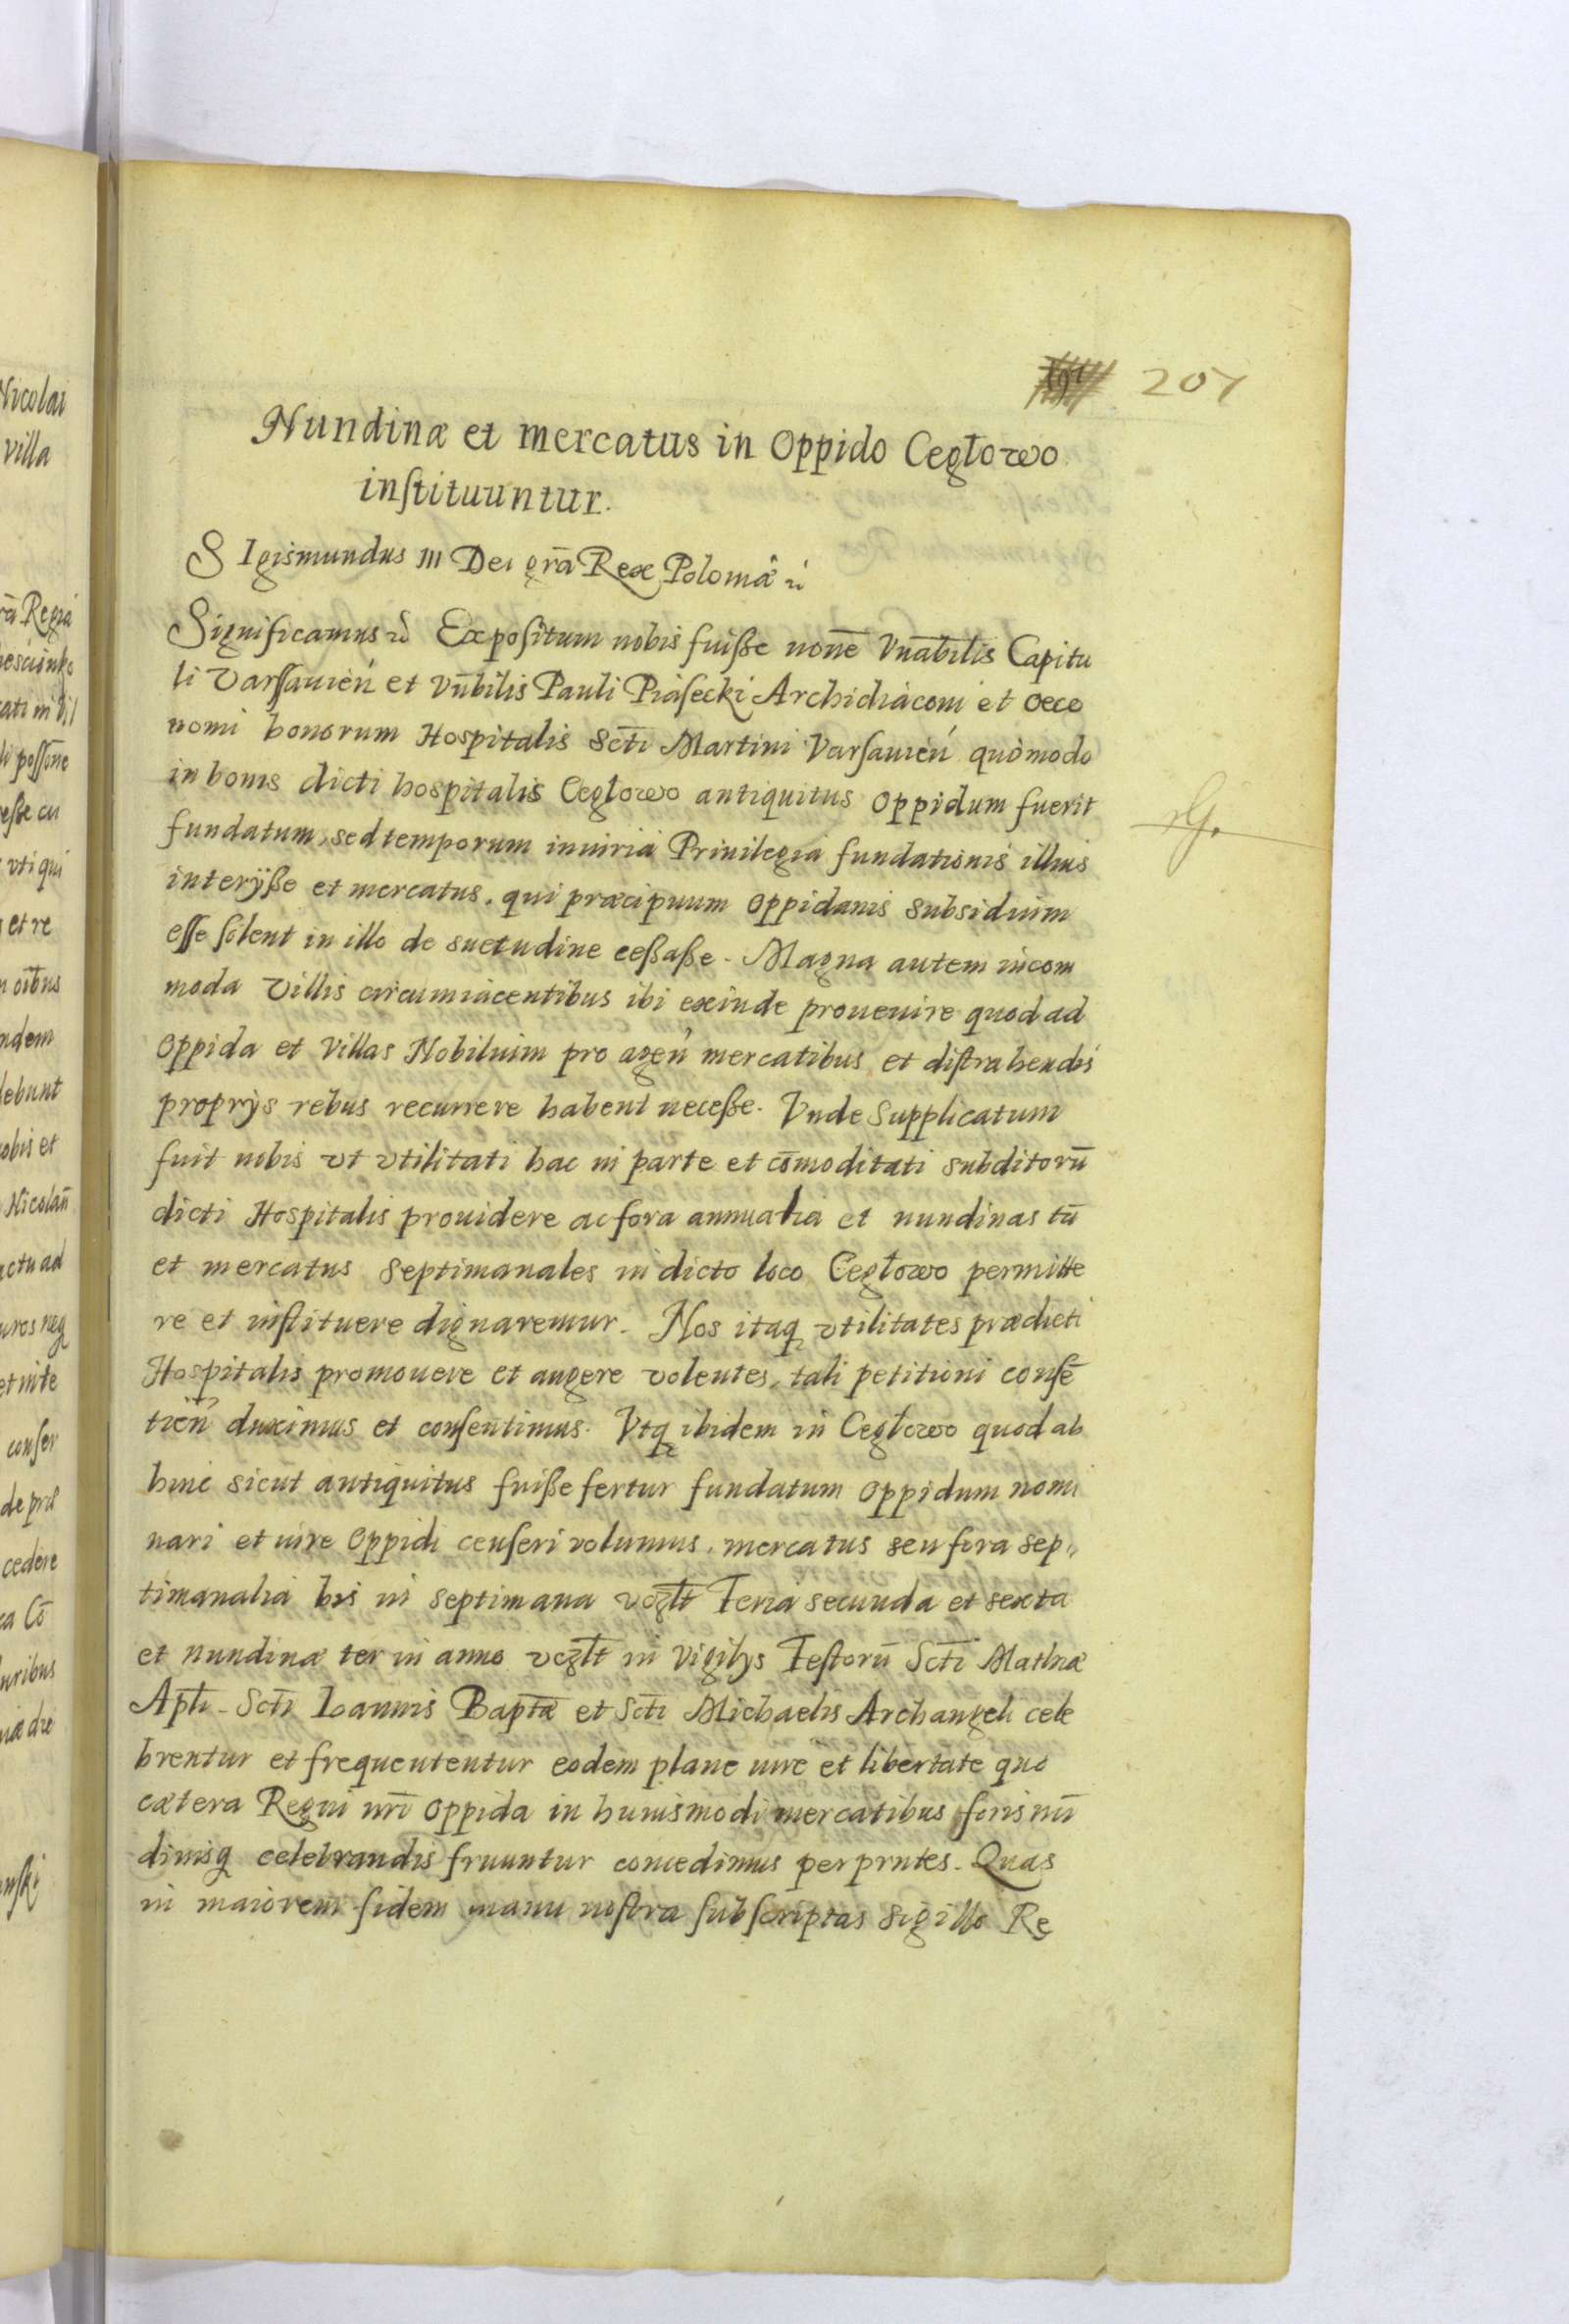 207
Nundinæ et mercatus in Oppido Cegłowo
instituuntur.
SIgismundus III Dei grā Rex Poloniæ
Significamus Expositum nobis fuisse noīe Vnābilis Capitu
li Varssauień et Vnb̄ilis Pauli Piasecki Archidiaconi et Oeco
nomi bonorum Hospitalis Sct̄i Martini Varsauień quòmodo
in bonis dicti hospitalis Cegłowo antiquitus oppidum fuerit
fundatum, sed temporum iniuria Priuilegia fundationis illius
interijsse et mercatus, qui præcipuum oppidanis subsidium
esse solent in illo de suetudine cessasse. Magna autem incom
moda Villis circumiacentibus ibi exinde prouenire quod ad
oppida et Villas Nobilium pro ageń mercatibus et distrahendis
proprijs rebus recurrere habent necesse. Vnde supplicatum
fuit nobis vt vtilitati hac in parte et cōmoditati subditorū
dicti Hospitalis prouidere ac fora annualia et nundinas tū
et mercatus septimanales in dicto loco Cegłowo permitte
re et instituere dignaremur. Nos itaq vtilitates prædicti
Hospitalis promouere et augere volentes, tali petitioni consē
tień duximus et consentimus. Vtq ibidem in Cegłowo quod ab
hinc sicut antiquitus fuisse fertur fundatum oppidum nomi
nari et iure oppidi censeri volumus, mercatus seu fora sep
timanalia bis in septimana vczlt̄ Feria secunda et sexta
et nundinæ ter in anno vczlt̄ in Vigilijs Festorū Sct̄i Mathiæ
Apl̄i. Sct̄i Ioannis Bapt̄æ et Sct̄i Michaelis Archangeli cele
brentur et frequententur eodem plane iure et libertate quo
cætera Regni nr̄i oppida in huiusmodi mercatibus foris nū
dinisq celebrandis fruuntur concedimus per prntes. Quas
in maiorem fidem manu nostra subscriptas sigillo Re